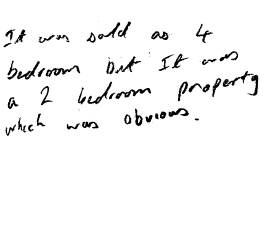 It was sold as 4
bedroom but It was
a 2 bedroom property
which was obvious.